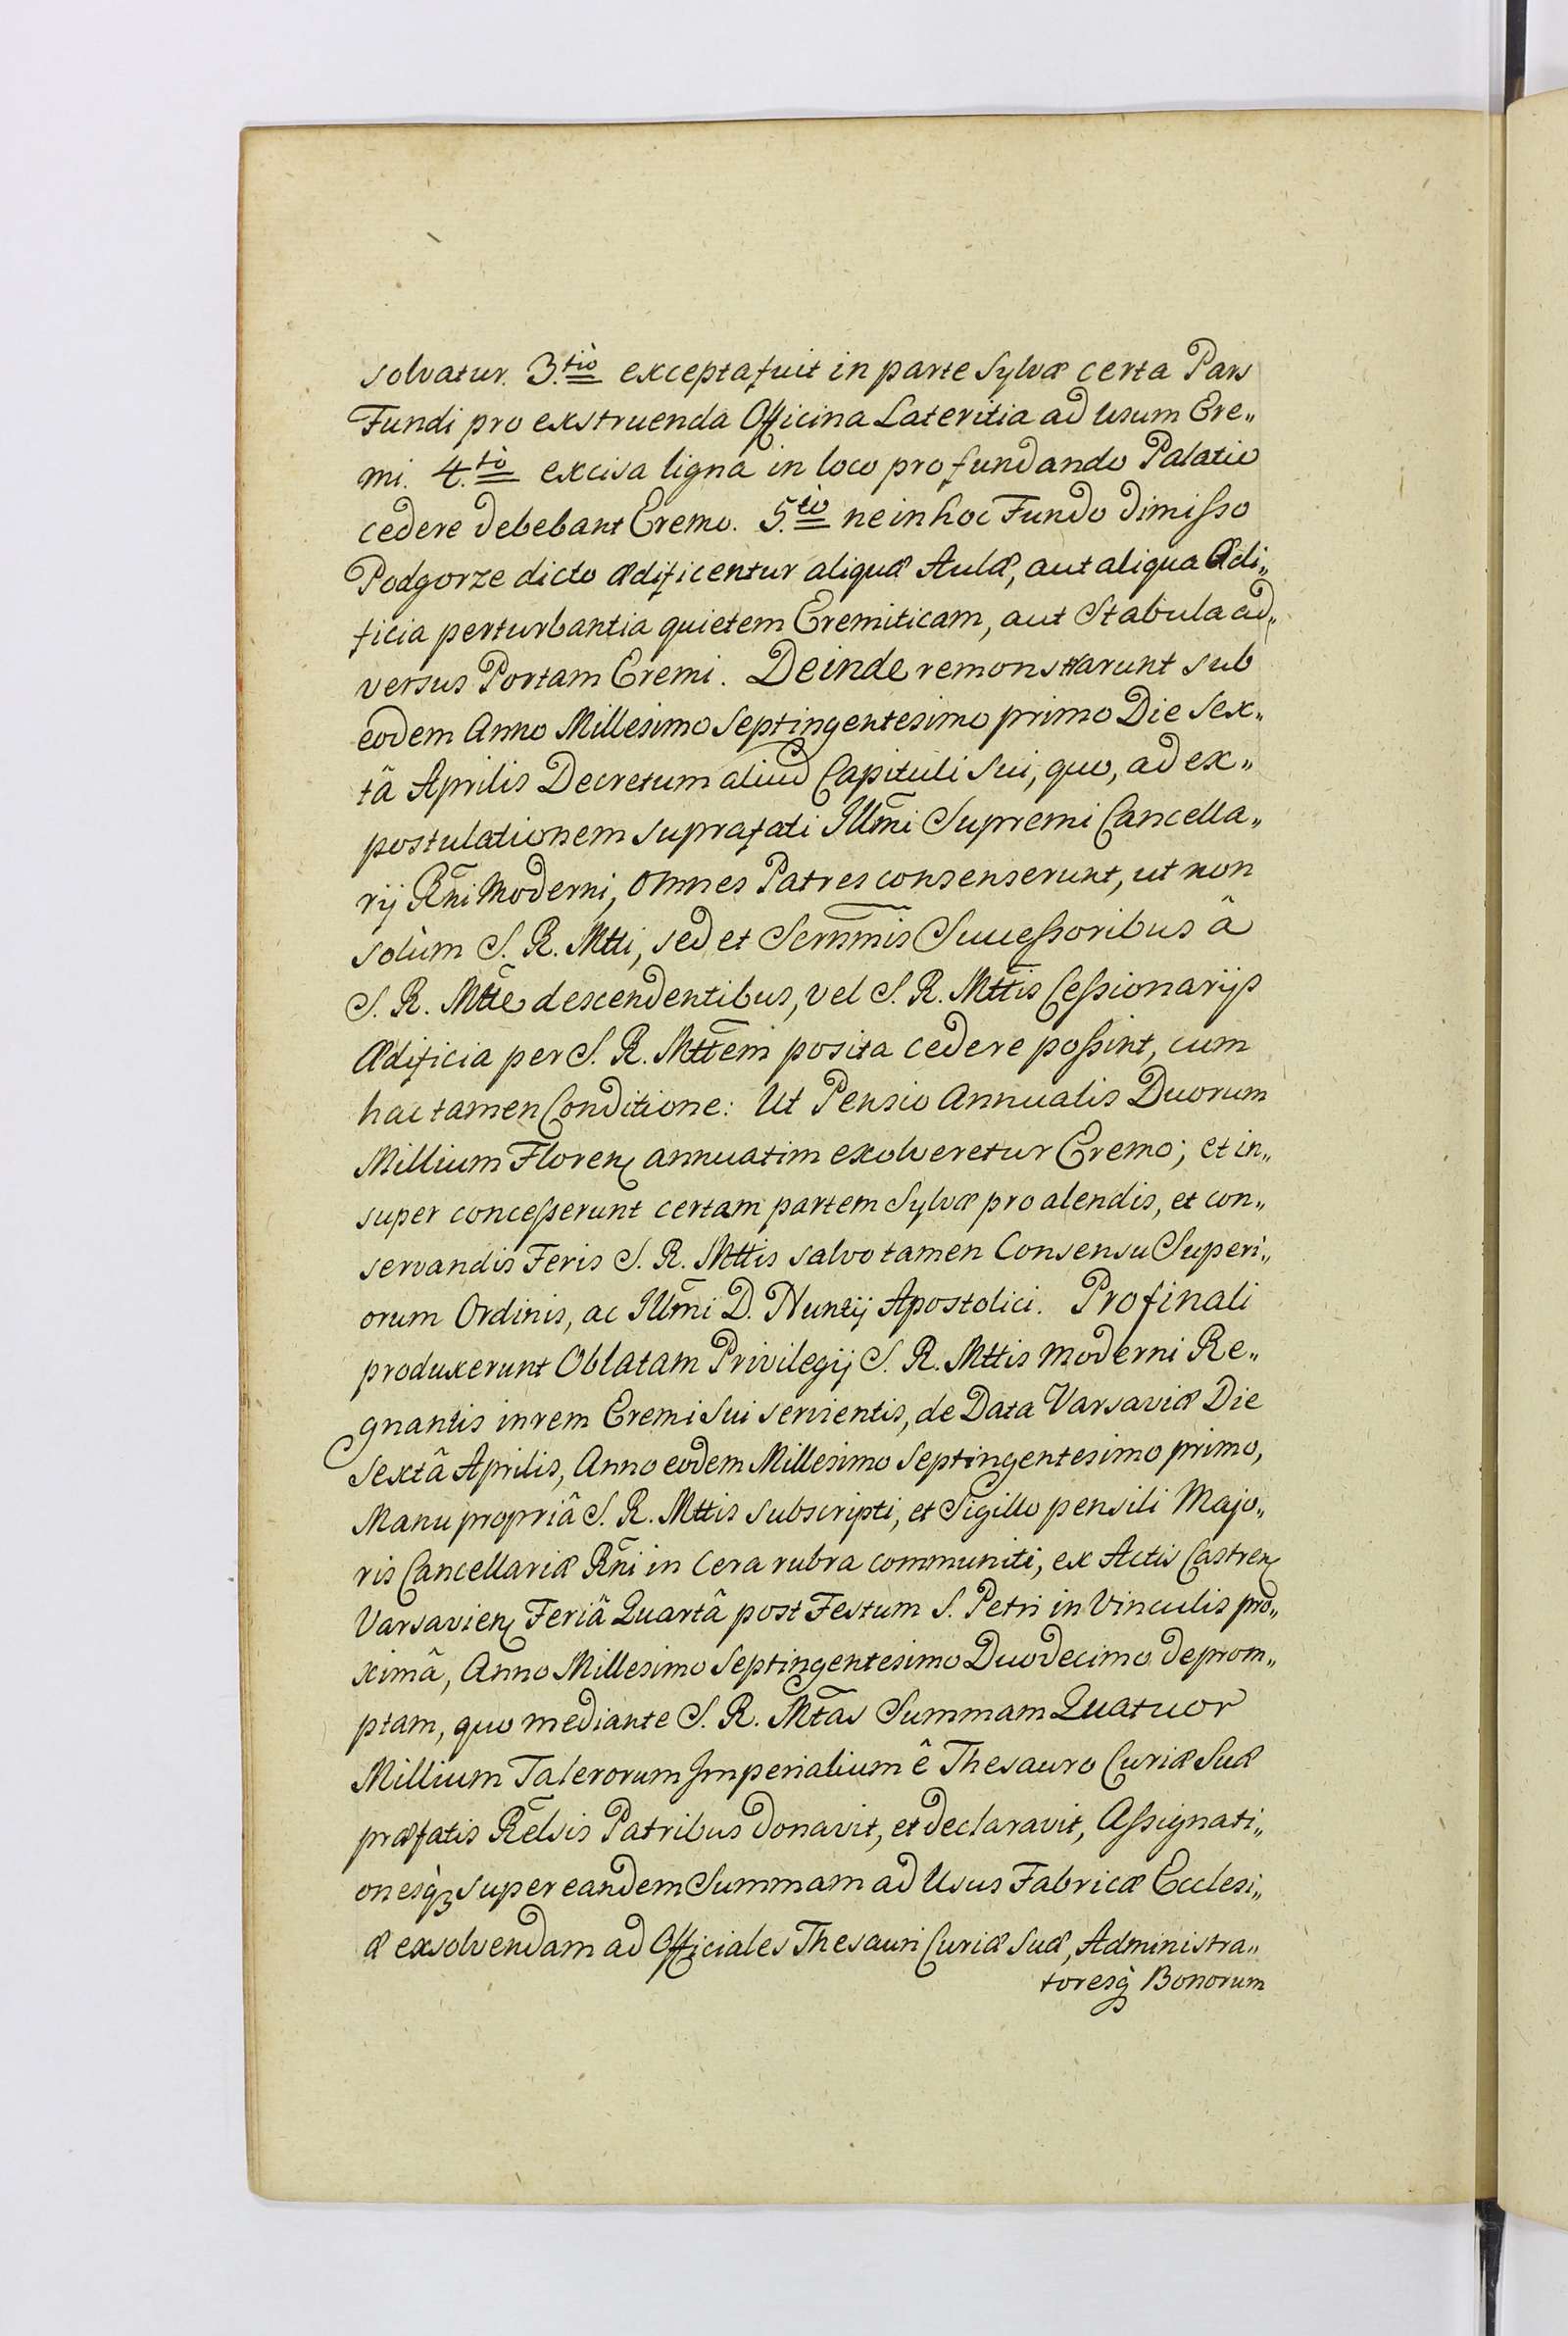 solvatur. 3.tiò excepta fuit in parte Sylvæ certa Pars
Fundi pro exstruenda Officina Lateritia ad Usum Ere„
mi. 4.tò excisa ligna in loco pro fundando Palatio
cedere debebant Eremo. 5.tò ne in hoc Fundo dimisso
Podgorze dicto ædificentur aliquæ Aulæ, aut aliqua Ædi„
ficia perturbantia quietem Eremiticam, aut Stabula ad„
versus Portam Eremi. Deinde remonstrarunt sub
eodem Anno Millesimo Septingentesimo primo Die Sex„
tâ Aprilis Decretum aliud Capituli sui, quo, ad ex„
postulationem suprafati Illm̃i Supremi Cancella„
rij Rñi Moderni, omnes Patres consenserunt, ut non
solùm S. R. Mtti, sed et Serm̃mis Successoribus â
S. R. Mtt̃e descendentibus, vel S. R. Mtt̃is Cessionarijs
Ædificia per S. R. Mtt̃em posita cedere possint, cum
hac tamen Conditione: Ut Pensio Annualis Duorum
Millium Floren annuatim exolveretur Eremo; et in„
super concesserunt certam partem Sylvæ pro alendis, et con„
servandis Feris S. R. Mttis salvo tamen Consensu Superi„
orum Ordinis, ac Illm̃i D. Nuntij Apostolici. Pro finali
produxerunt Oblatam Privilegij S. R. Mttis moderni Re„
gnantis in rem Eremi sui servientis, de Data Varsaviæ Die
Sextâ Aprilis, Anno eodem Millesimo Septingentesimo primo,
Manu propriâ S. R. Mttis subscripti, et Sigillo pensili Majo„
ris Cancellariæ Rñi in Cera rubra communiti, ex Actis Castren
Varsavien Feriâ Quartâ post Festum S. Petri in Vinculis pro„
ximâ, Anno Millesimo Septingentesimo Duodecimo deprom„
ptam, quo mediante S. R. Mt̃as Summam Quatuor
Millium Talerorum Imperialium ê Thesauro Curiæ Suæ
præfatis Rel̃sis Patribus donavit, et declaravit, Assignati„
onesq́ꝫ super eandem Summam ad Usus Fabricæ Ecclesi„
æ exsolvendam ad Officiales Thesauri Curiæ Suæ, Administra„
toresq́ Bonorum